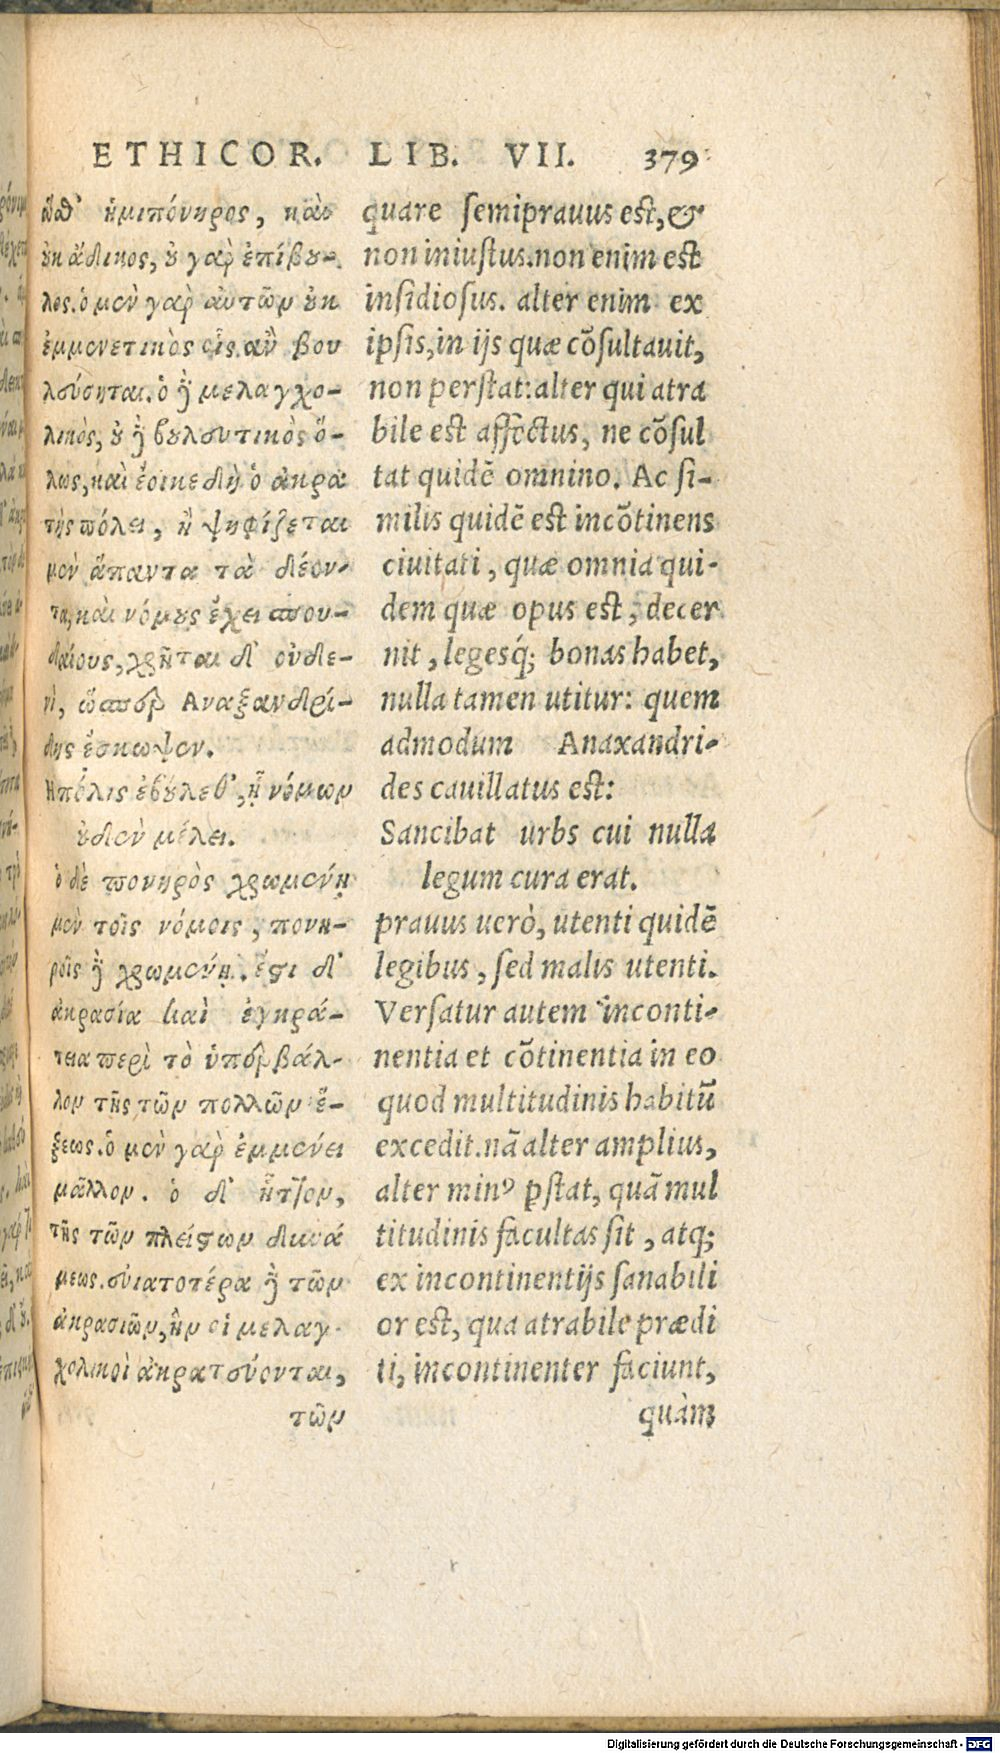 ETHICOR. LIB. VII. 379
ὥσθ' ἡμιπόνηρος, καὶ
οὐκ ἄδικος, οὐ γὰρ ἐπίβου-
λος. ὁ μὲν γὰρ αὐτῶν οὐκ
ἐμμενετικὸς οἷς ἂν βου
λεύσηται. ὁ δὲ μελαγχο-
λικὸς, οὐ δὲ βουλευτικὸς ὅ-
λως, καὶ ἔοικε δὴ ὁ ἀκρα
τὴς πόλει, ἣ ψηφίζεται
μὲν ἅπαντα τὰ δέον-
τα, καὶ νόμους ἔχει σπου-
δαίους, χρῆται δ' οὐδε-
νὶ, ὥσπερ Αναξανδρί-
δης ἔσκωψεν.
Ηπόλις ἐβούλεθ', ᾗ νόμων
οὐδὲν μέλει.
ὁ δὲ πονηρὸς χρωμένῃ
μὲν τοῖς νόμοις, πονη-
ροῖς δὲ χρωμένῃ. ἔστι δ'
ἀκρασία καὶ ἐγκρά-
τεια περὶ τὸ ὑπερβάλ-
λον τῆς τῶν πολλῶν ἕ-
ξεως. ὁ μὲν γὰρ ἐμμένει
μᾶλλον. ὁ δ' ἧττον,
τῆς τῶν πλείστων δυνά
μεως. εὐιατοτέρα δὲ τῶν
ἀκρασιῶν, ἣν οἱ μελαγ-
χολικοὶ ἀκρατεύονται,
τῶν
quare semiprauus est, &
non iniustus. non enim est
insidiosus. alter enim ex
ipsis, in ijs quæ cõsultauit,
non perstat: alter qui atra
bile est affectus, ne cõsul
tat quidẽ omnino. Ac si-
milis quidẽ est incõtinens
ciuitati, quæ omnia qui-
dem quæ opus est, decer
nit, legesq́; bonas habet,
nulla tamen utitur: quem
admodum Anaxandri-
des cauillatus est:
Sancibat urbs cui nulla
legum cura erat.
prauus uerò, utenti quidẽ
legibus, sed malis utenti.
Versatur autem inconti-
nentia et cõtinentia in eo
quod multitudinis habitũ
excedit. nã alter amplius,
alter minꝰ ꝑstat, quã mul
titudinis facultas sit, atq;
ex incontinentijs sanabili
or est, qua atrabile prædi
ti, incontinenter faciunt,
quàm
Digitalisierung gefördert durch die Deutsche Forschungsgemeinschaft - DFG